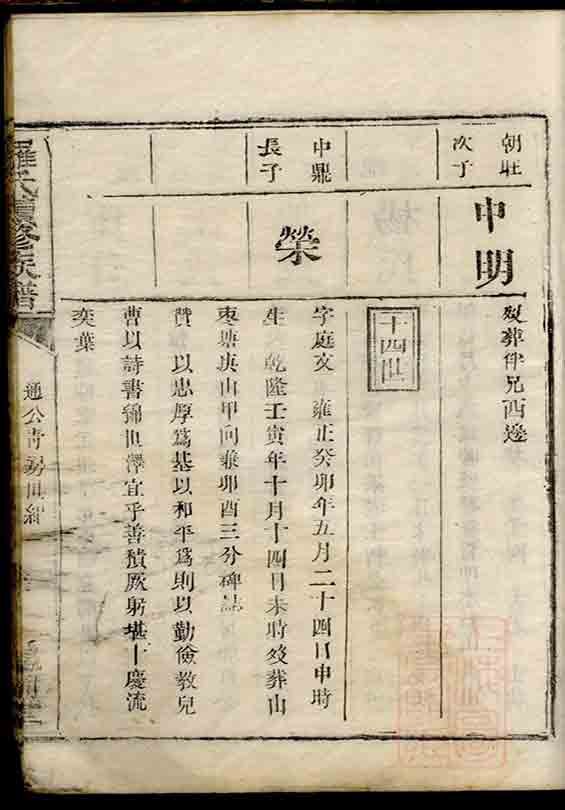 朝旺
次子
申明
歿葬伴兄西邊
十四世
中鼎
長子
榮
字庭文 雍正癸卯年五月二十四日申時
生 乾隆壬寅年十月十四日未時歿葬山
棗塘庚山甲向兼卯酉三分碑誌
贊 以忠厚爲基以和平爲則以勤儉教兒
曹以詩書綿世澤宜乎善積厥躬堪卜慶流
奕葉
羅氏續修族譜
通公青房世紀